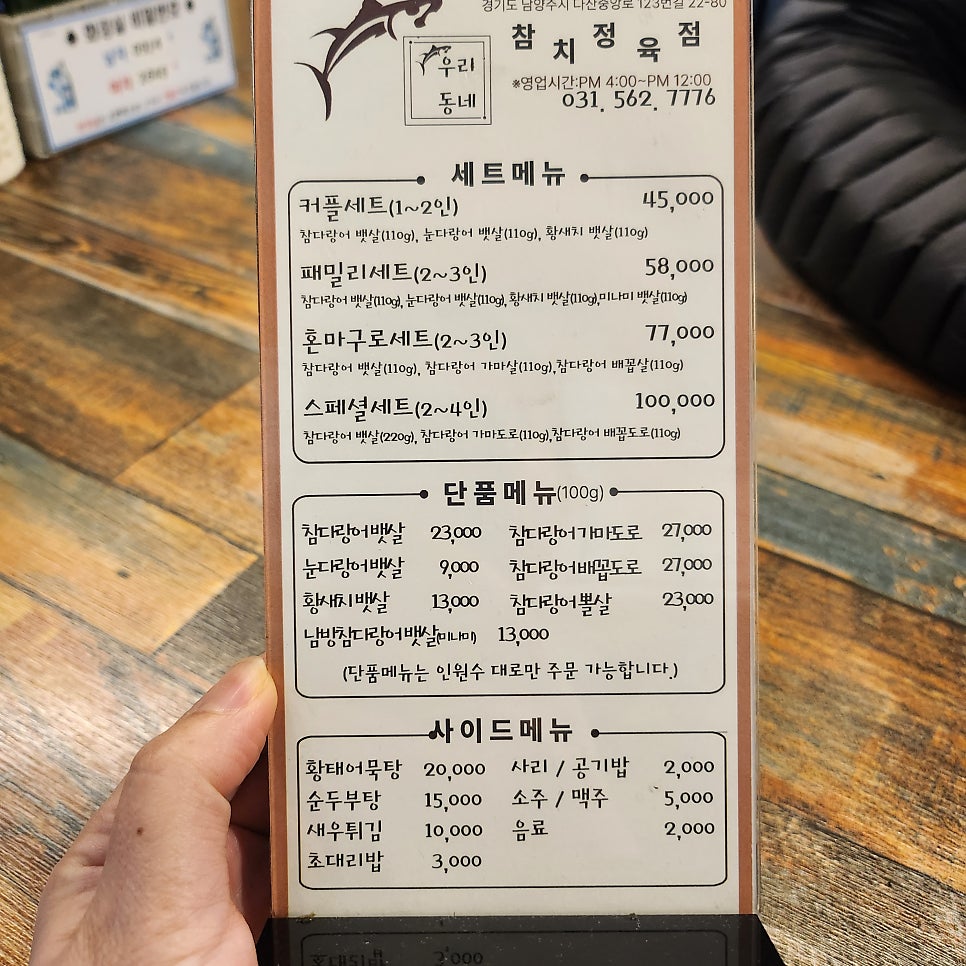 경기도 남양주시 다산중앙로 123번길 22-80
참치정육점
우리
동네
※영업시간:PM 4:00~PM 12:00
031. 562. 7776
세트메뉴
커플세트(1~2인) 45,000
참다랑어 뱃살(110g), 눈다랑어 뱃살(110g), 황새치 뱃살(110g)
패밀리세트(2~3인) 58,000
참다랑어 뱃살(110g), 눈다랑어 뱃살(110g), 황새치 뱃살(110g),미나미 뱃살(110g)
혼마구로세트(2~3인) 77,000
참다랑어 뱃살(110g), 참다랑어 가마살(110g),참다랑어 배꼽살(110g)
스페셜세트(2~4인) 100,000
참다랑어 뱃살(220g), 참다랑어 가마도로(110g),참다랑어 배꼽도로(110g)
단품메뉴(100g)
참다랑어뱃살 23,000 참다랑어가마도로 27,000
눈다랑어뱃살 9,000 참다랑어배꼽도로 27,000
황새치뱃살 13,000 참다랑어뽈살 23,000
남방참다랑어뱃살(미나미) 13,000
(단품메뉴는 인원수 대로만 주문 가능합니다.)
사이드메뉴
황태어묵탕 20,000 사리 / 공기밥 2,000
순두부탕 15,000 소주 / 맥주 5,000
새우튀김 10,000 음료 2,000
초대리밥 3,000